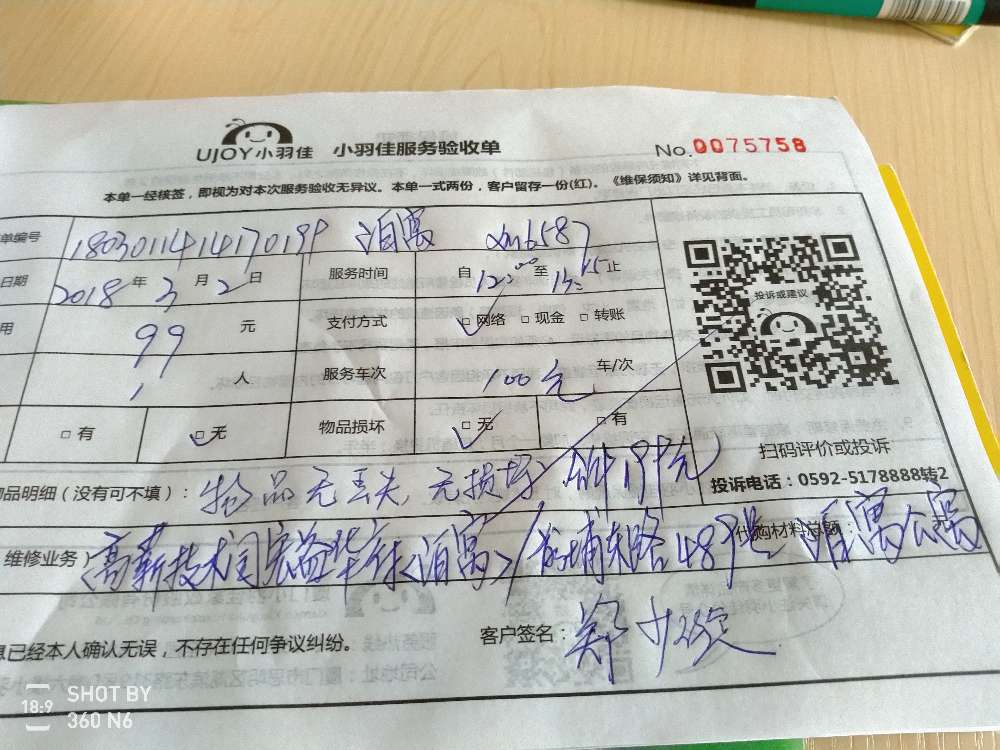 UJOY小羽佳 小羽佳服务验收单 No.0075758
本单一经核签，即视为对本次服务验收无异议。本单一式两份，客户留存一份(红)。《维保须知》详见背面。
单编号 泊寓 xm6587
日期 2018年3月2日 服务时间 自12:00至13:15止
用 99元 支付方式 □网络 □现金 □转账
1人 服务车次 100元 车/次
□有 □无 物品损坏 □无 □有
投诉或建议
扫码评价或投诉
投诉电话：0592-5178888转2
物品明细（没有可不填）：物品无丢失，无损坏 合计199元
代购材料总额：
维修业务） 高薪技术园 泊寓 埔东路487 泊寓公寓
息已经本人确认无误，不存在任何争议纠纷。 客户签名：郑
SHOT BY
360 N6
18:9